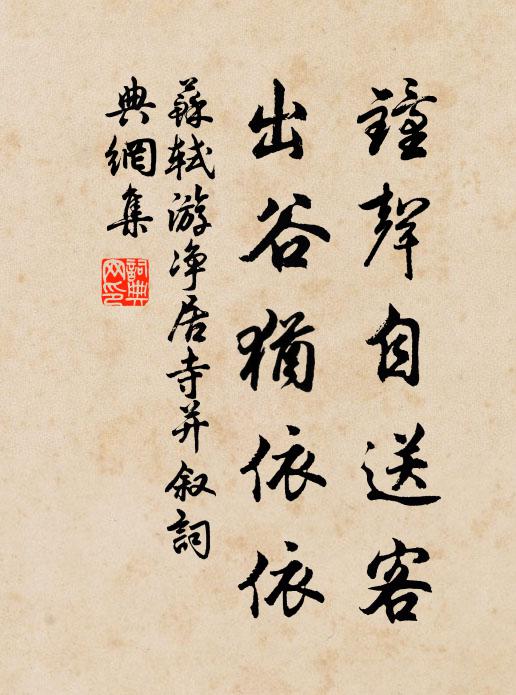 鐘聲自送客
出谷猶依依
蘇軾游净居寺并叙詞
典網集
詞典
网印